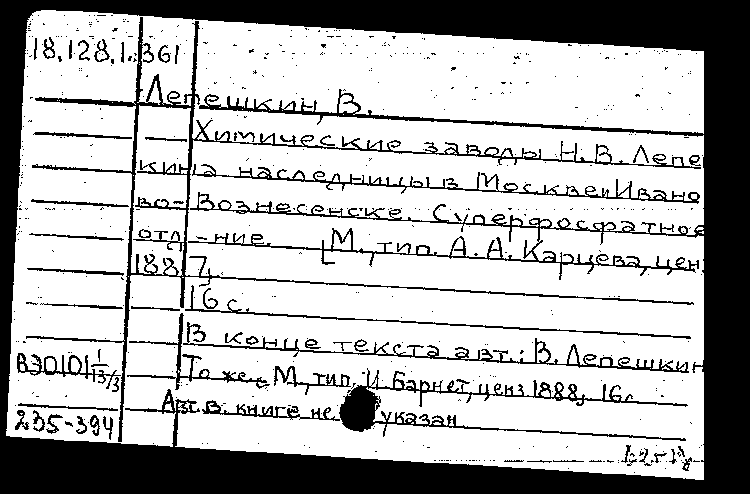 18.128.1.361
Лепешкин, В.
Химические заводы Н. В. Лепе
кина наследницы в Москве и Ивано
во-Вознесенске. Суперфосфатное
отд-ние. [М., тип. А. А. Карцева, ценз
1887].
16 с.
В конце текста авт.: В. Лепешкин
То же. М., тип. И. Барнет, ценз 1888. 16 с.
Авт. в книге не указан
ВЭ0101 1/13/3
235-394